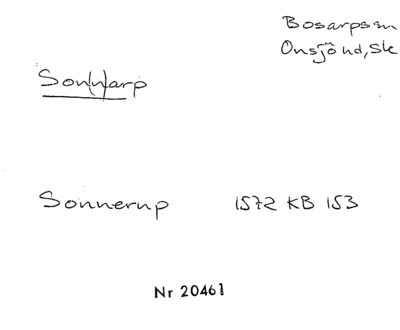 Bosarpssn
Onsjöhd, Sk
Son(n)arp
Sonnerup 1572 KB 153
Nr 20461